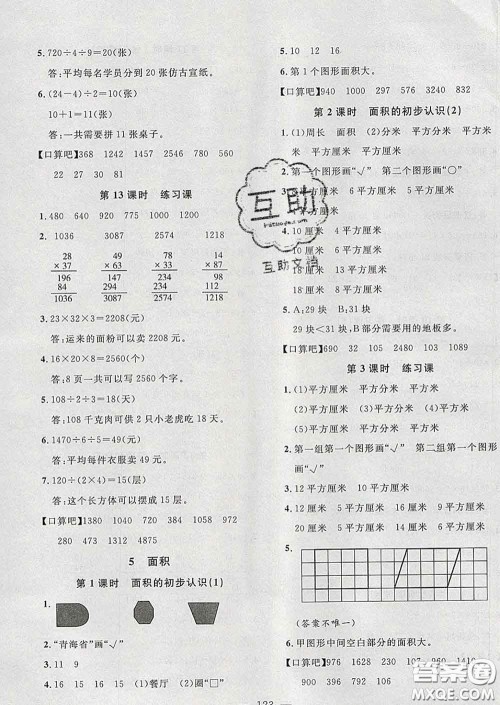 5. 720÷4÷9=20(张)
答:平均每名学员分到 20 张仿古宣纸。
6. (24-4)÷2=10(张)
10+1=11(张)
答:一共需要拼 11 张桌子。
【口算吧】368 1242 1645 1357 1508
22 27 30 81
第 13 课时 练习课
1. 480 640 920 775 1000 1200
2. 1036 3087 1638 2814
28 49 63 42
×37 ×63 ×26 ×67
196 147 378 294
84 294 126 252
1036 3087 1638 2814
3. 23×32×3=2208(元)
答:运来的面粉可以卖 2208 元。
4. 40×8×8=2560(字)
答:8 页一共可以写 2560 个字。
5. 108÷2÷3=18(天)
答:108 千克肉可供 2 只小老虎吃 18 天。
6. 1470÷6÷5=49(元)
答:平均每件衣服卖 49 元。
7. 120÷(2×4)=15(层)
答:这个长方体可以摆成 15 层。
【口算吧】1380 1000 340 1058 972
280 473 1312 4875
5 面积
第 1 课时 面积的初步认识(1)
1.
2. “青海省”画“√”
3. 11 9
4. 16 15 15 16 (1)餐厅 (2)圈“□”
5. 10 12 16
6. 第 1 个图形面积大。
【口算吧】1776 950 1000 7630 3240 832
第 2 课时 面积的初步认识(2)
1. (1)周长 面积 (2)分米 平方分米 米
平方米 厘米 平方厘米
2. 第一个图形画“√” 第二个图形画“○”
3. 5 平方厘米 6 平方厘米 5 平方厘米
4. 10 厘米 4 平方厘米
16 厘米 9 平方厘米
14 厘米 6 平方厘米
18 厘米 8 平方厘米
5. A:29 块 B:31 块
29 块<31 块,B 部分需要用的地板多。
【口算吧】690 32 105 2480 1089
第 3 课时 练习课
1. (1)平方厘米 平方分米 平方米
(2)平方厘米 平方分米 平方米
2. 第一组第一个图形画“√” 第二组第一个图
形画“√”
3. 10 平方厘米 11 平方厘米
4. 12 厘米 5 平方厘米 14 厘米 6 平方厘米
10 厘米 4 平方厘米 12 厘米 9 平方厘米
5.
(答案不唯一)
6. 甲图形中间空白部分的面积大。
【口算吧】976 1628 230
300 945 5390
互助
互助文档
答案圈
MXQE.COM